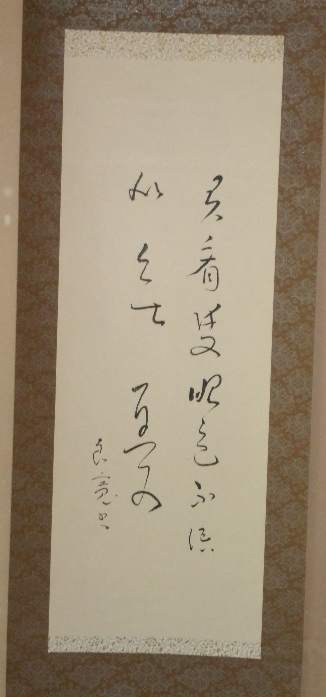 君看雙眼色不語
似無憂
良寛書